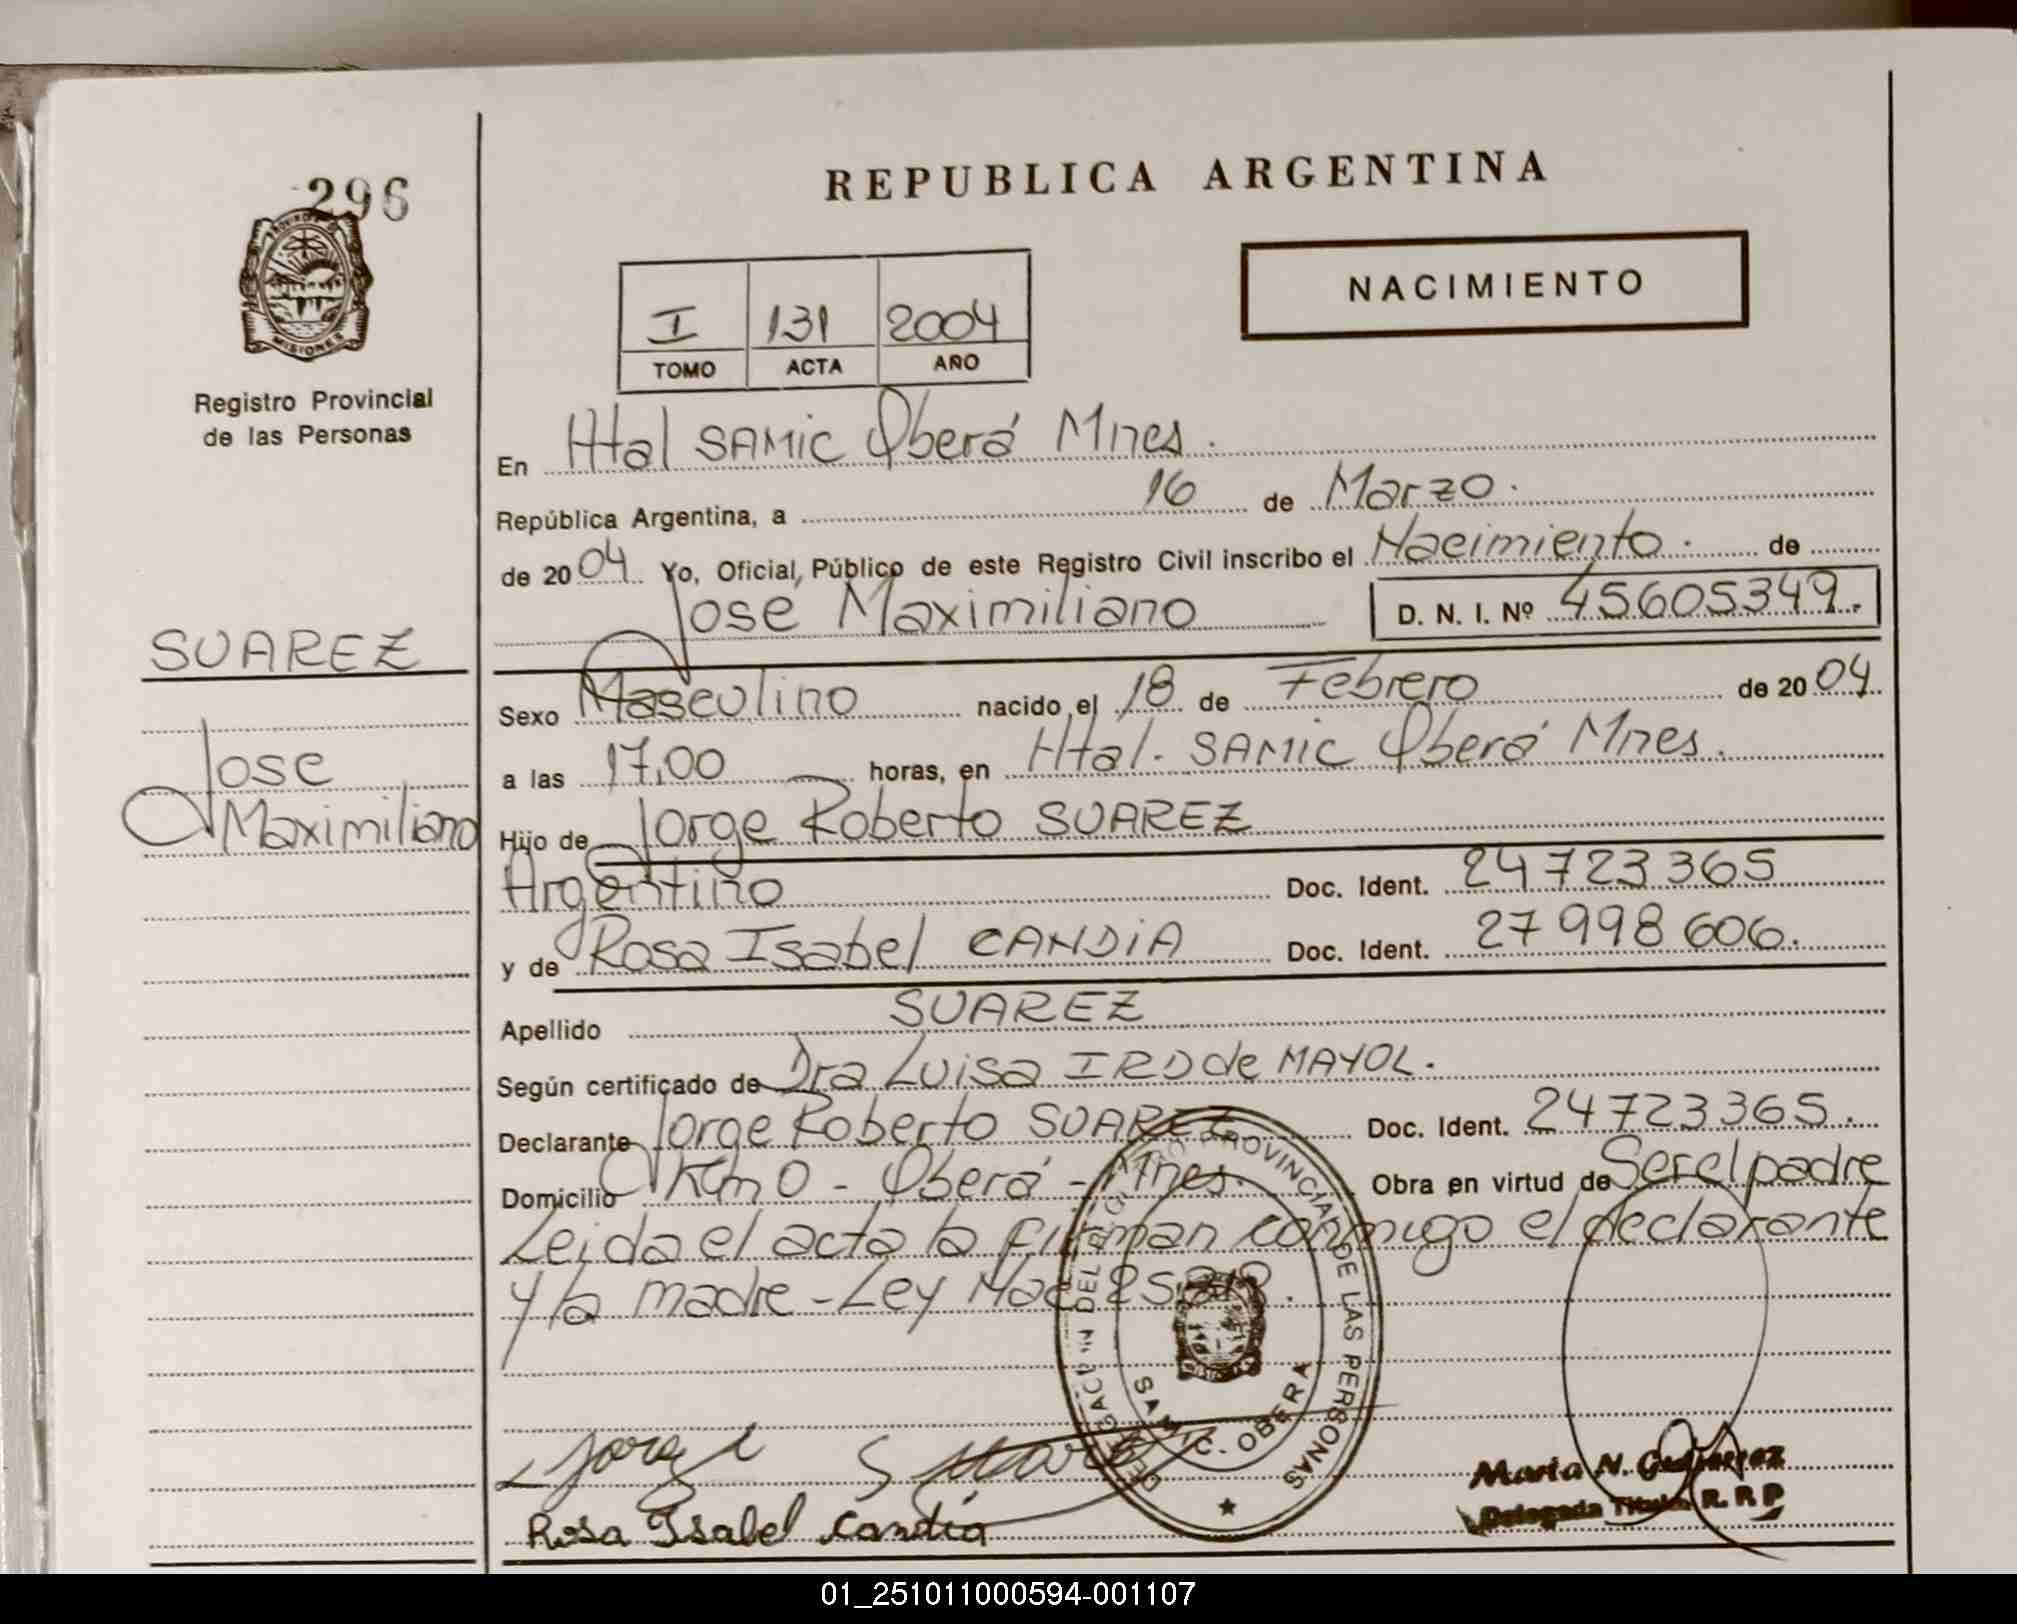 296
MISIONES
Registro Provincial
de las Personas
SUAREZ
Jose
Maximiliano
REPUBLICA ARGENTINA
NACIMIENTO
I 131 2004
TOMO ACTA AÑO
En Htal SAMIC Oberá Mnes.
República Argentina, a 16 de Marzo.
de 2004 Yo, Oficial Público de este Registro Civil inscribo el Nacimiento. de
Jose Maximiliano D. N. I. Nº 45605349.
Sexo Masculino nacido el 18 de Febrero de 2004
a las 17,00 horas, en Htal. SAMIC Oberá Mnes.
Hijo de Jorge Roberto SUAREZ
Argentino Doc. Ident. 24723365
y de Rosa Isabel CANDIA Doc. Ident. 27998606.
Apellido SUAREZ
Según certificado de Dra Luisa IRD de MAYOL.
Declarante Jorge Roberto SUAREZ Doc. Ident. 24723365.
Domicilio Km 0 - Oberá - Mnes. Obra en virtud de Ser el padre
Leida el acta la firman conmigo el declarante
y la madre - Ley Nac
DELEGACION DEL REGISTRO PROVINCIAL DE LAS PERSONAS
SAMIC. OBERA
Jorge Suarez
Rosa Isabel Candia
Maria N. Gutierrez
Delegada Titular R. R. P
01_251011000594-001107